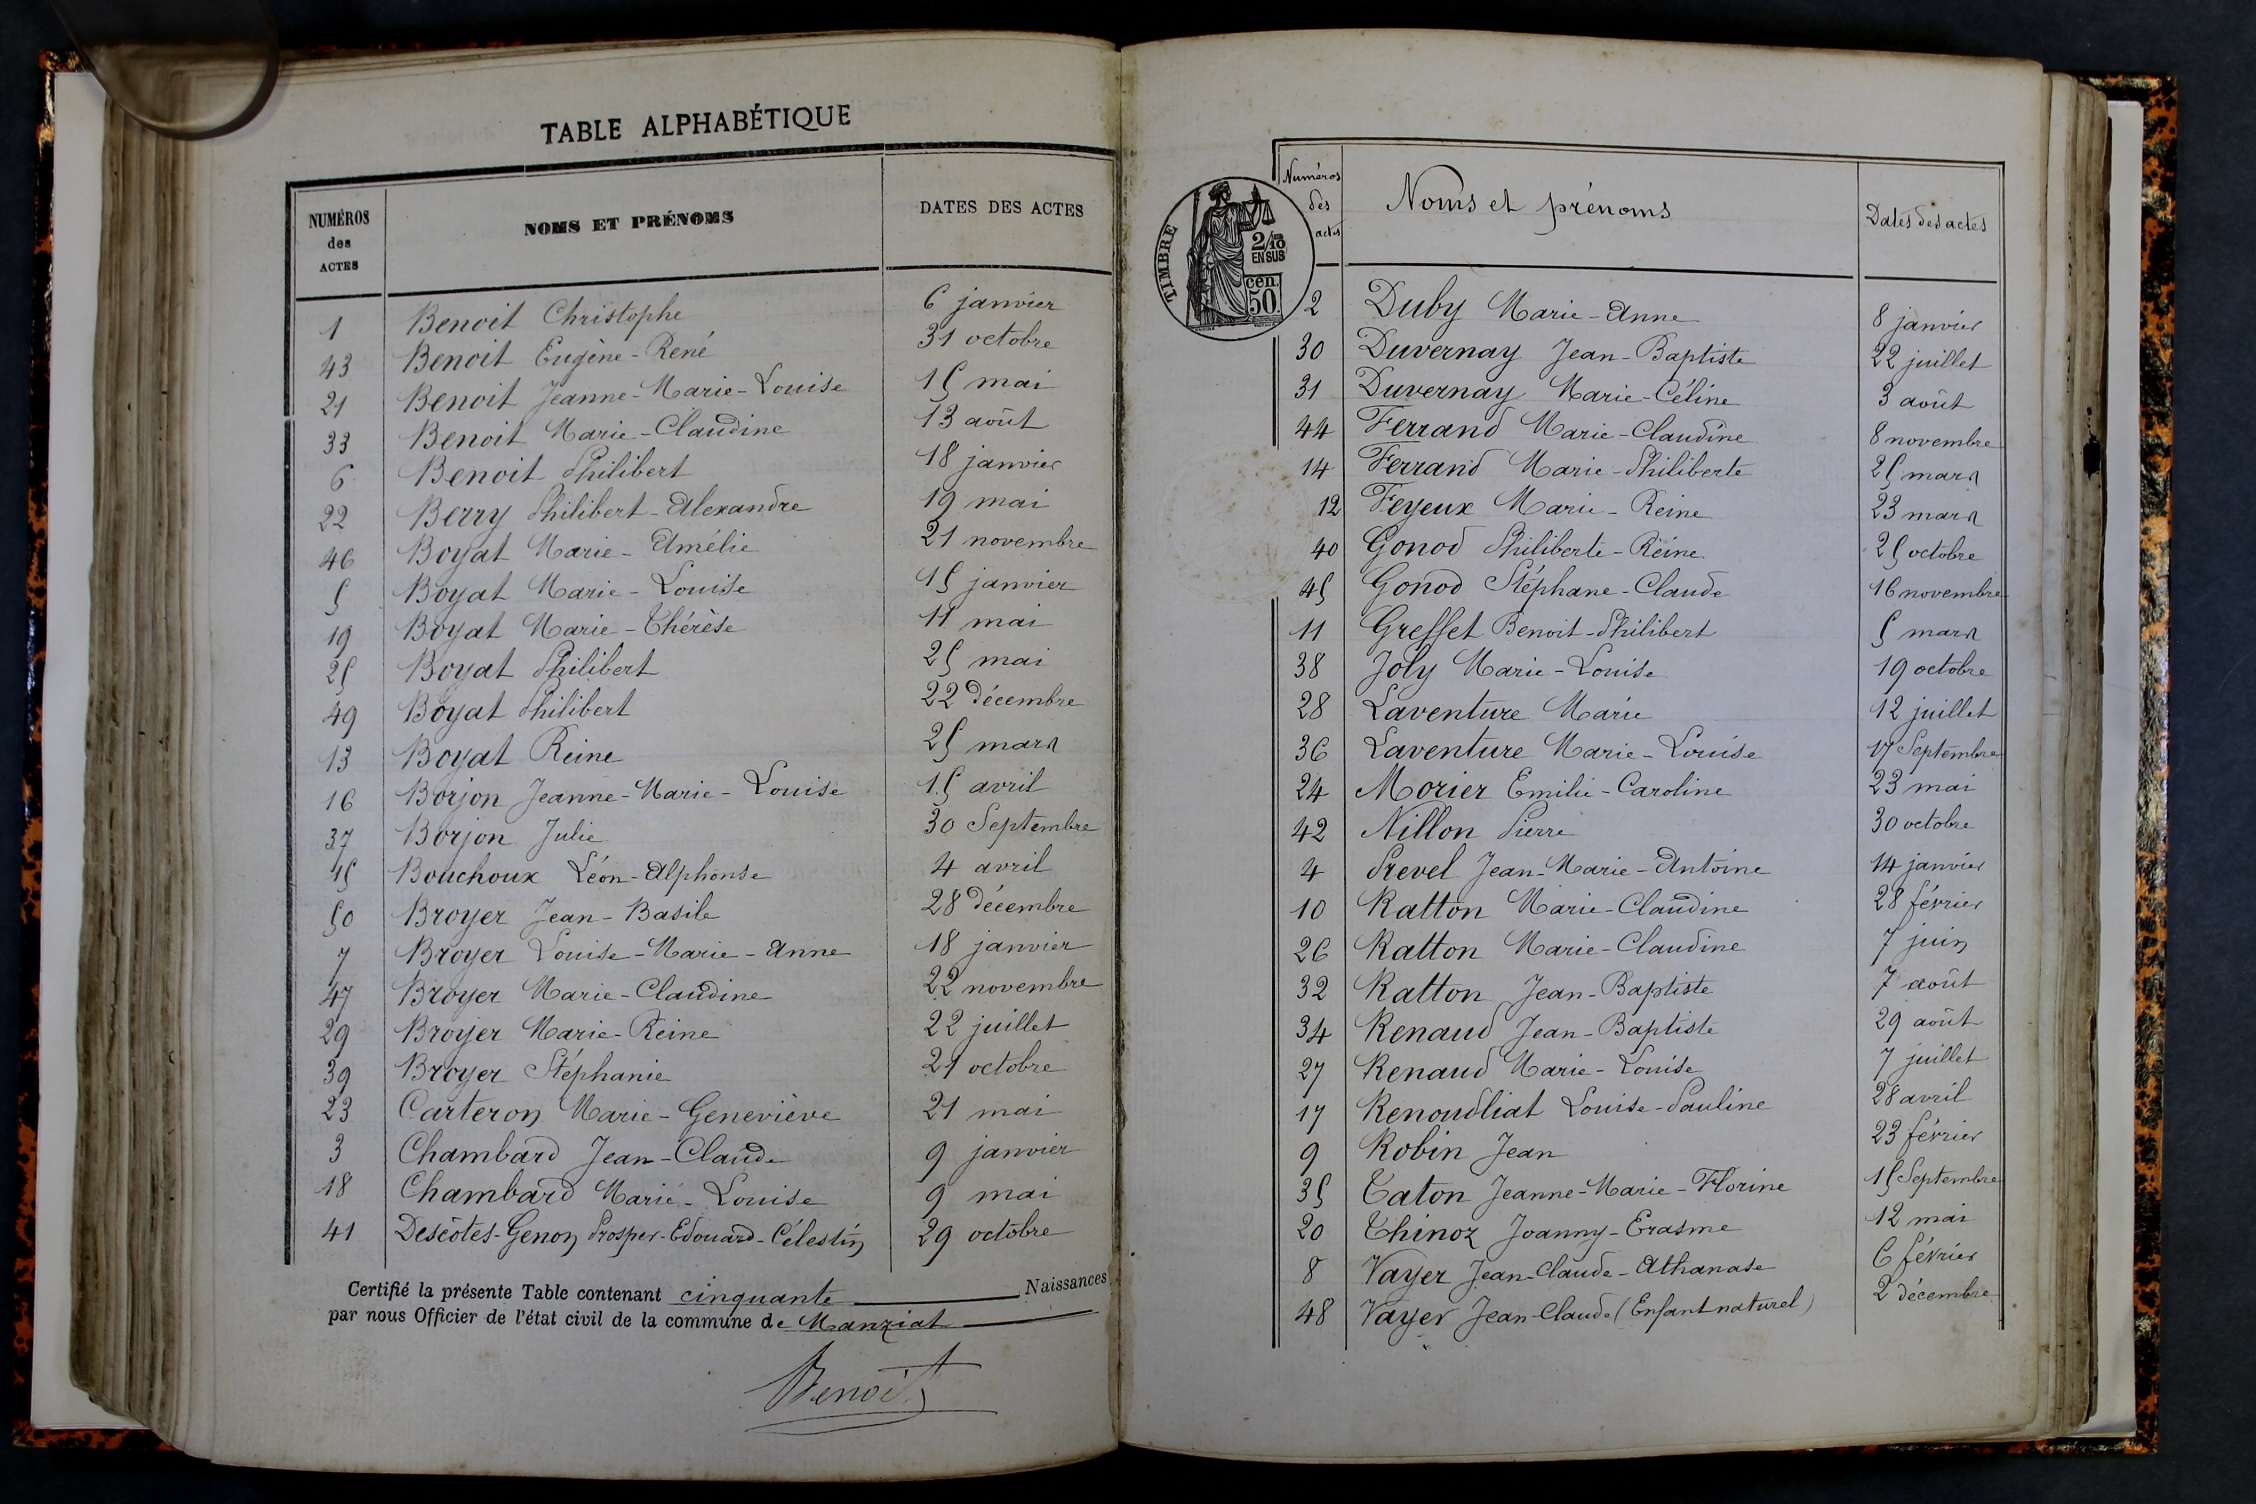 TABLE ALPHABÉTIQUE
NUMÉROS des ACTES NOMS ET PRÉNOMS DATES DES ACTES
1 Benoit Christophe 6 janvier
43 Benoit Eugène-René 31 octobre
21 Benoit Jeanne-Marie-Louise 15 mai
33 Benoit Marie-Claudine 13 août
6 Benoit Philibert 18 janvier
22 Berry Philibert-Alexandre 19 mai
46 Boyat Marie-Amélie 21 novembre
5 Boyat Marie-Louise 15 janvier
19 Boyat Marie-Thérèse 11 mai
25 Boyat Philibert 25 mai
49 Boyat Philibert 22 décembre
13 Boyat Reine 25 mars
16 Borjon Jeanne-Marie-Louise 15 avril
37 Borjon Julie 30 Septembre
15 Bouchoux Léon-Alphonse 4 avril
50 Broyer Jean-Basile 28 décembre
7 Broyer Louise-Marie-Anne 18 janvier
47 Broyer Marie-Claudine 22 novembre
29 Broyer Marie-Reine 22 juillet
39 Broyer Stéphanie 21 octobre
23 Carteron Marie-Geneviève 21 mai
3 Chambard Jean-Claude 9 janvier
18 Chambard Marie-Louise 9 mai
41 Descôtes-Genon Prosper-Edouard-Célestin 29 octobre
Certifié la présente Table contenant cinquante Naissances
par nous Officier de l'état civil de la commune de Manziat
Benoit
Numéros des actes Noms et prénoms Dates des actes
TIMBRE
2/10 EN SUS
cen. 50
2 Duby Marie-Anne 8 janvier
30 Duvernay Jean-Baptiste 22 juillet
31 Duvernay Marie-Céline 3 août
44 Ferrand Marie-Claudine 8 novembre
14 Ferrand Marie-Philiberte 25 mars
12 Feyeux Marie-Reine 23 mars
40 Gonod Philiberte-Reine 25 octobre
45 Gonod Stéphane-Claude 16 novembre
11 Greffet Benoit-Philibert 5 mars
38 Joly Marie-Louise 19 octobre
28 Laventure Marie 12 juillet
36 Laventure Marie-Louise 17 Septembre
24 Morier Emilie-Caroline 23 mai
42 Nillon Pierre 30 octobre
4 Prevel Jean-Marie-Antoine 14 janvier
10 Ratton Marie-Claudine 28 février
26 Ratton Marie-Claudine 7 juin
32 Ratton Jean-Baptiste 7 août
34 Renaud Jean-Baptiste 29 août
27 Renaud Marie-Louise 7 juillet
17 Renoudliat Louise-Pauline 28 avril
9 Robin Jean 23 février
35 Taton Jeanne-Marie-Florine 15 Septembre
20 Thinoz Joanny-Erasme 12 mai
8 Vayer Jean-Claude-Athanase 6 février
48 Vayer Jean-Claude (Enfant naturel) 2 décembre